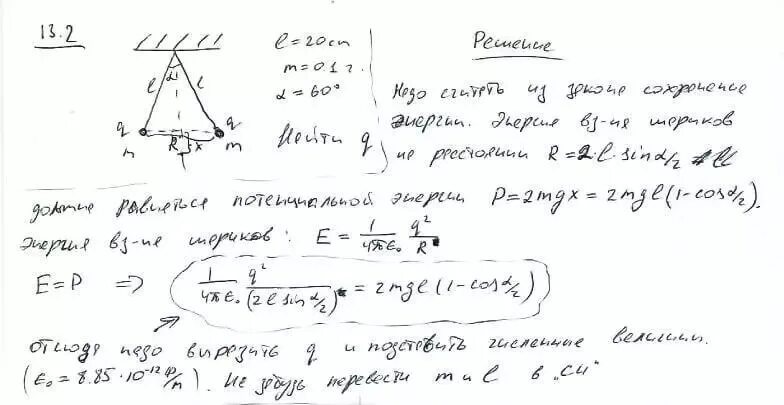 13.2
l = 20 cm
m = 0.1 г.
α = 60°
Найти q
α
l
l
q
m
R
x
q
m
Решение
Надо считать из закона сохранения
энергии. Энергия вз-ия шариков
на расстоянии R = 2·l·sin α/2
должна равняться потенциальной энергии P = 2mgx = 2mgl(1-cos α/2).
Энергия вз-ия шариков: E = 1/4πε₀ q²/R
E = P => 1/4πε₀ q²/(2l sin α/2) = 2mgl(1-cos α/2)
отсюда надо выразить q и подставить численные величины.
(ε₀ = 8.85·10⁻¹² Ф/m). Не забудь перевести m и l в „СИ"